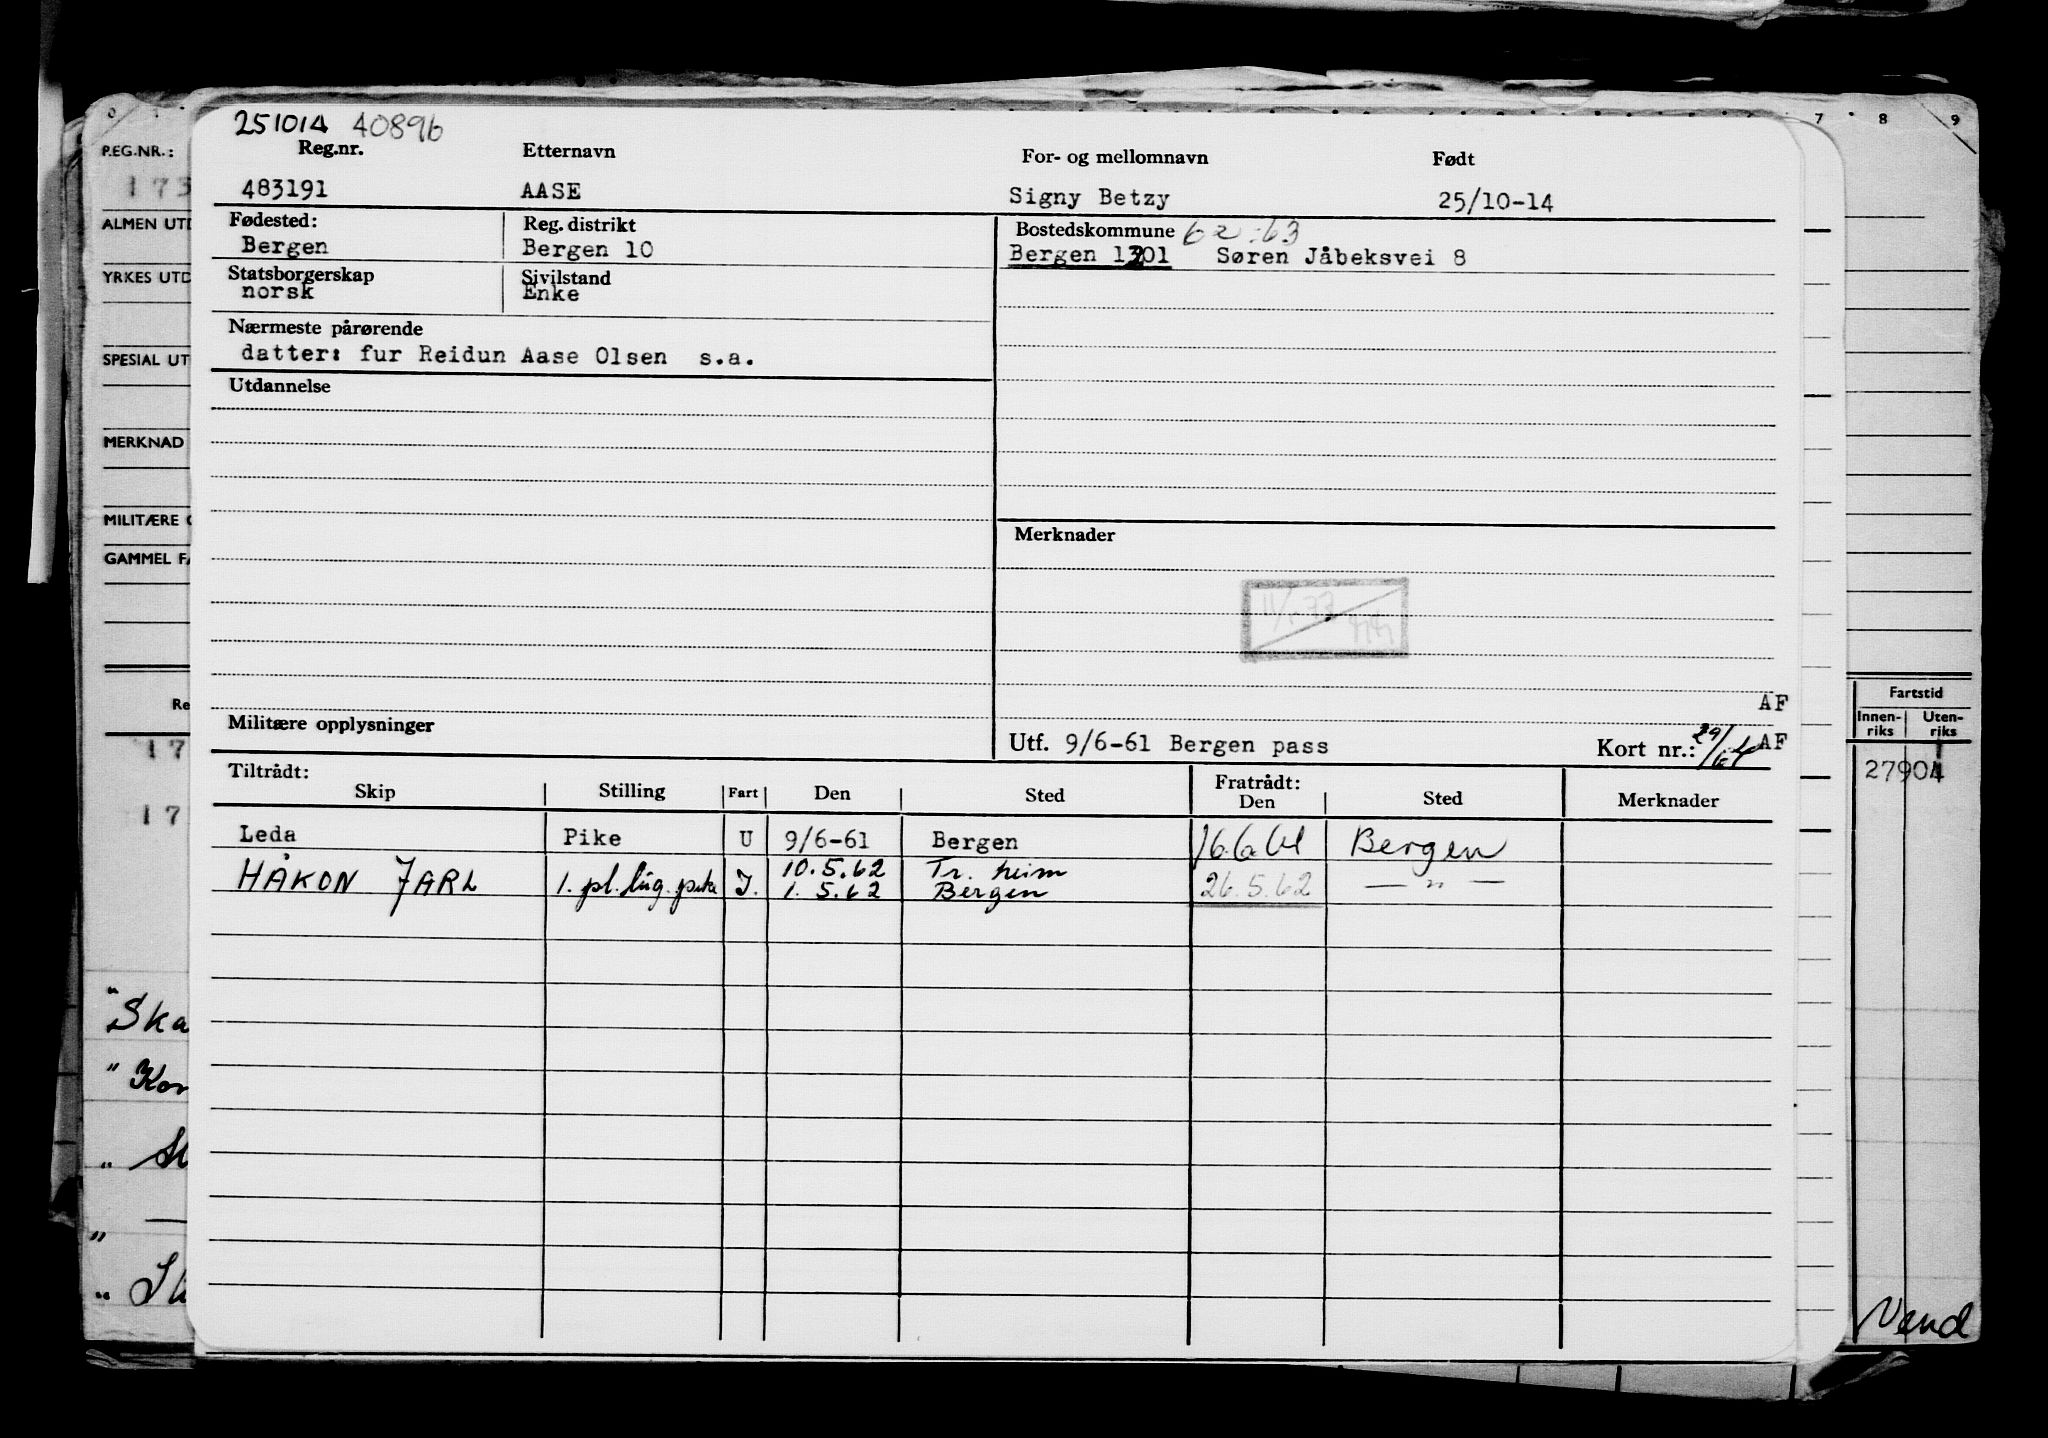 0 7 8 9
251014 40896
Reg.nr. Etternavn For- og mellomnavn Født
483191 AASE Signy Betzy 25/10-14
Fødested: Reg. distrikt Bostedskommune 62-63
Bergen Bergen 10 Bergen 1301 Søren Jåbeksvei 8
Statsborgerskap Sivilstand
norsk Enke
Nærmeste pårørende
datter: fur Reidun Aase Olsen s.a.
Utdannelse
Merknader
AF
Militære opplysninger
Utf. 9/6-61 Bergen pass Kort nr.: 29/64 AF
Tiltrådt: Fratrådt:
Skip Stilling Fart Den Sted Den Sted Merknader
Leda Pike U 9/6-61 Bergen 16.6.61 Bergen
HÅKON JARL 1. pl. lug. pike I. 10.5.62 Tr. heim
1.5.62 Bergen 26.5.62 — " —
P.EG.NR.:
173
ALMEN UTD
YRKES UTD
SPESIAL UT
MERKNAD
MILITÆRE O
GAMMEL FA
Re
17
17
"Ska
"Kor
Fartstid
Innen- Uten-
riks riks
27904
Vend